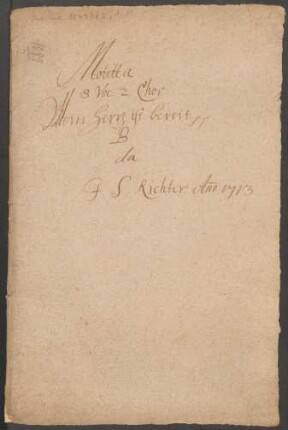 Motetta
8 Voc 2 Chor
Mein Hertz ist bereit
B
da
J S Richter Año 1713